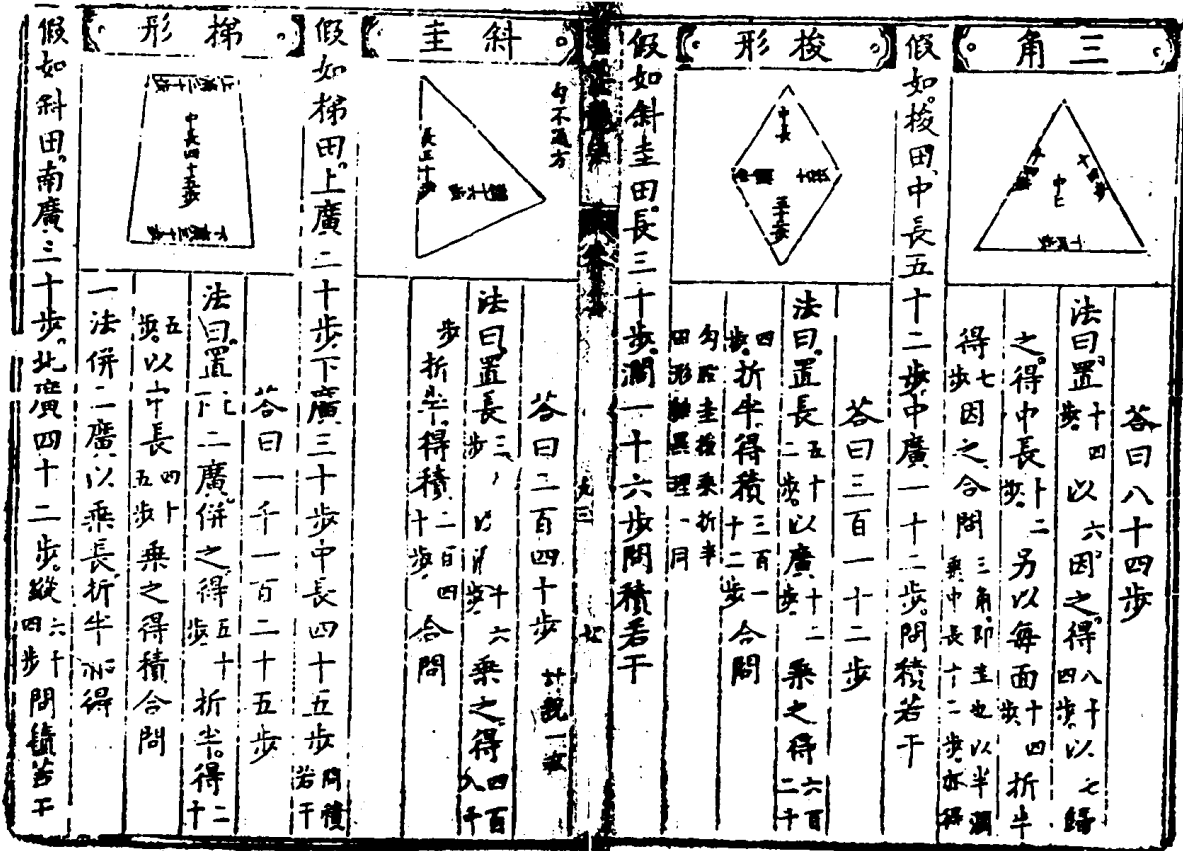 三角
答曰八十四步
法曰置十四步以六因之得八十四步以七歸
之得中長十二步另以每面十四步折半
得七步因之合問三角即圭也以半濶乘中長十二步亦得
假如梭田中長五十二步中廣一十二步問積若干
梭形
中長
五十二步
答曰三百一十二步
法曰置長五十二步以廣十二步乘之得六百二十
四步折半得積三百一十二步合問
假如斜圭田長三十步濶一十六步問積若干
斜圭
勾不過方
長三十步
答曰二百四十步
法曰置長三步乘之得四百八十
步折半得積二百四十步合問
假如梯田上廣二十步下廣三十步中長四十五步問積若干
梯形
中長四十五步
答曰一千一百二十五步
法曰置二廣併之得五十步折半得二十
五步以中長四十五步乘之得積合問
一法併二廣以乘長折半亦得
假如斜田南廣三十步北廣四十二步縱六十四步問積若干